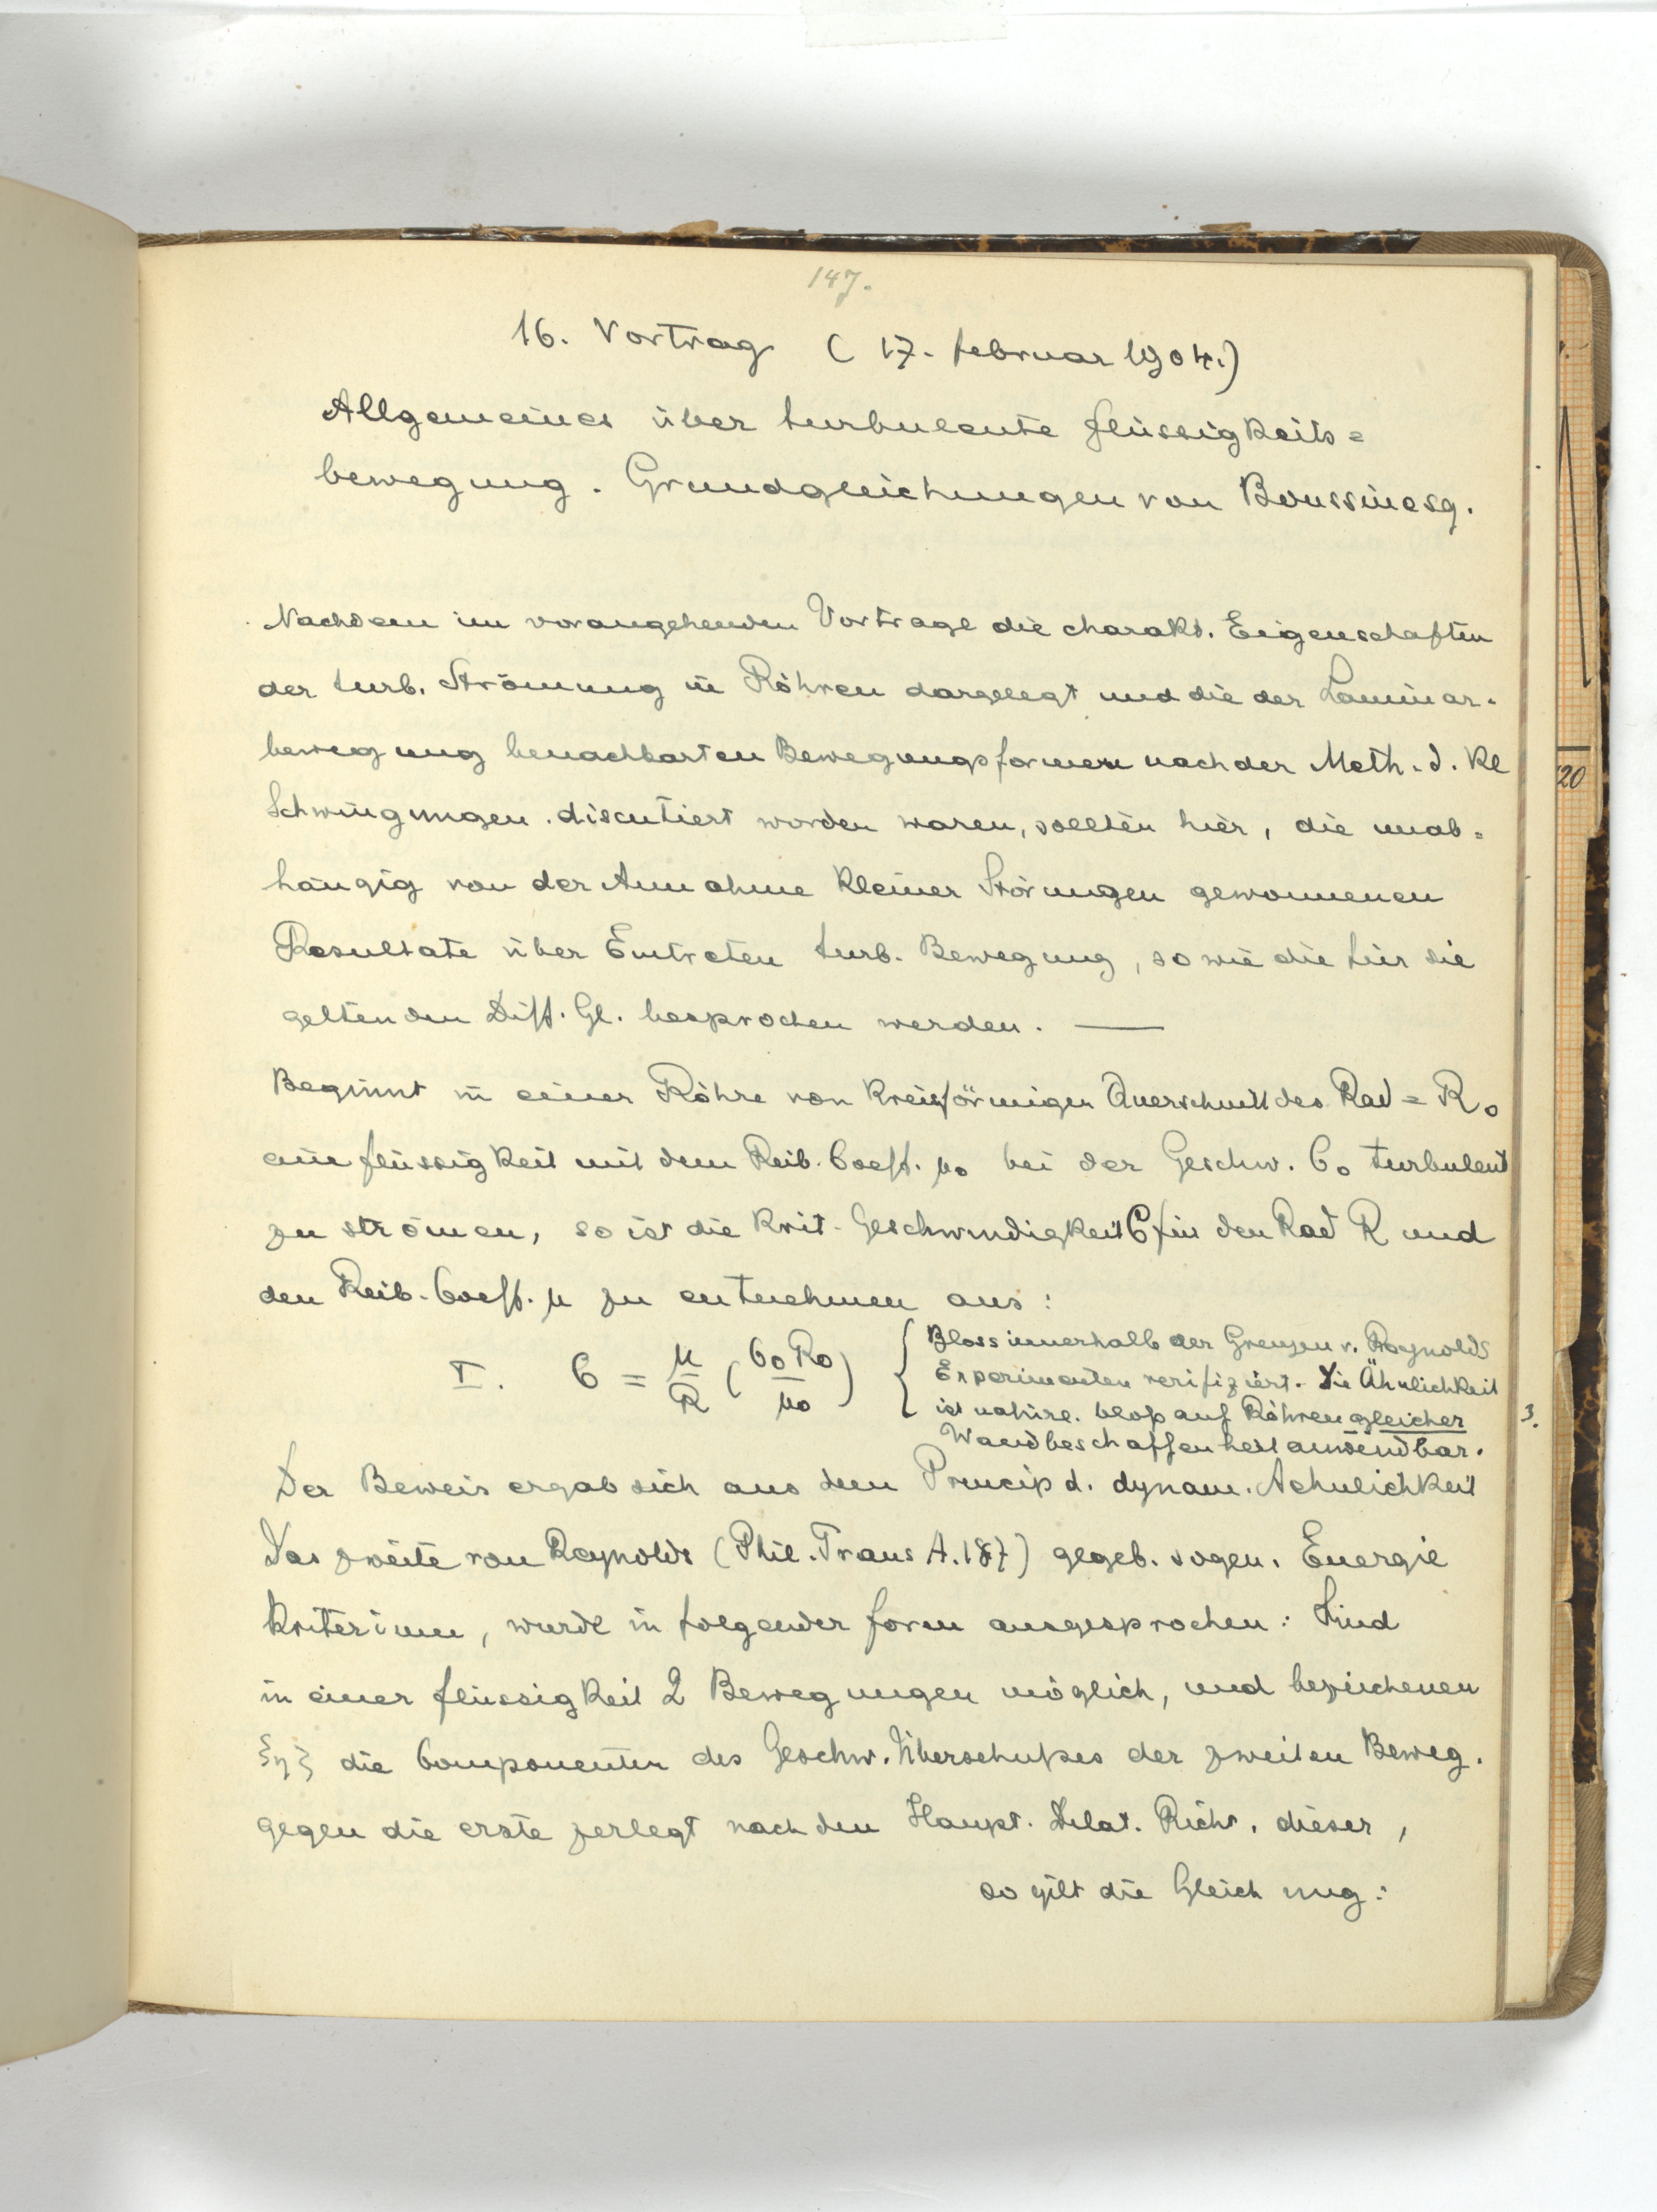 147.
16. Vortrag (17. Februar 1904.)
Allgemeines über turbulente Flüssigkeits=
bewegung. Grundgleichungen von Boussinesq.
Nachdem im vorangehenden Vortrage die charakt. Eigenschaften
der turb. Strömung in Röhren dargelegt und die der Laminar-
bewegung benachbarten Bewegungsformen nach der Meth. d. kl
Schwingungen discutiert worden waren, sollten hier, die unab=
hängig von der Annahme kleiner Störungen gewonnenen
Resultate über Eintreten turb. Bewegung, so wie die für sie
geltenden Diff. Gl. besprochen werden. —
Beginnt in einer Röhre von kreisförmigen Querschnitt des Rad = R₀
eine Flüssigkeit mit dem Reib. Coeff. μ₀ bei der Geschw. C₀ turbulent
zu strömen, so ist die krit. Geschwindigkeit C für den Rad R und
den Reib. Coeff. μ zu entnehmen aus:
I. C = μ/R (C₀R₀/μ₀)
{ Bloss innerhalb der Grenzen v. Reynolds
Experimenten verifiziert. Die Ähnlichkeit
ist natürl. bloß auf Röhren gleicher
Wandbeschaffenheit anwendbar.
3.
Der Beweis ergab sich aus dem Princip d. dynam. Aehnlichkeit
Das zweite von Reynolds (Phil. Trans A. 187) gegeb. sogen. Energie
kriterium, wurde in folgender Form ausgesprochen: Sind
in einer Flüssigkeit 2 Bewegungen möglich, und bezeichenen
ξηζ die Componenten des Geschw. Überschußes der zweiten Beweg.
gegen die erste zerlegt nach den Haupt. Dilat. Richt. dieser,
so gilt die Gleichung:
20